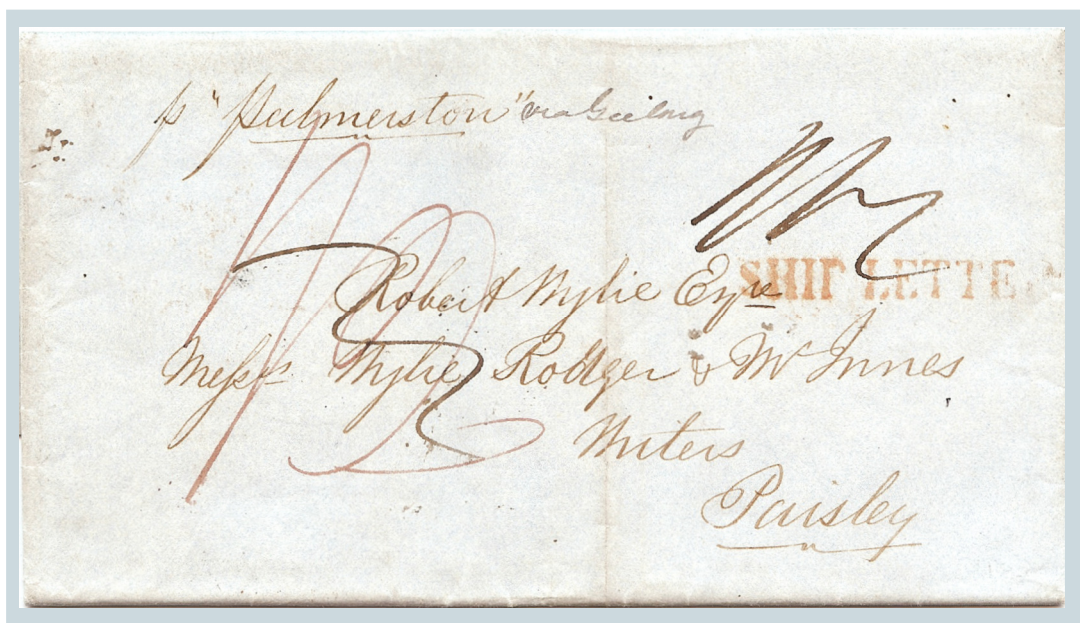 p "Palmerston" via Geelong
SHIP LETTE
Robert Wylie Esqre
Messrs Wylie, Rodger & McInnes
Writers
Paisley